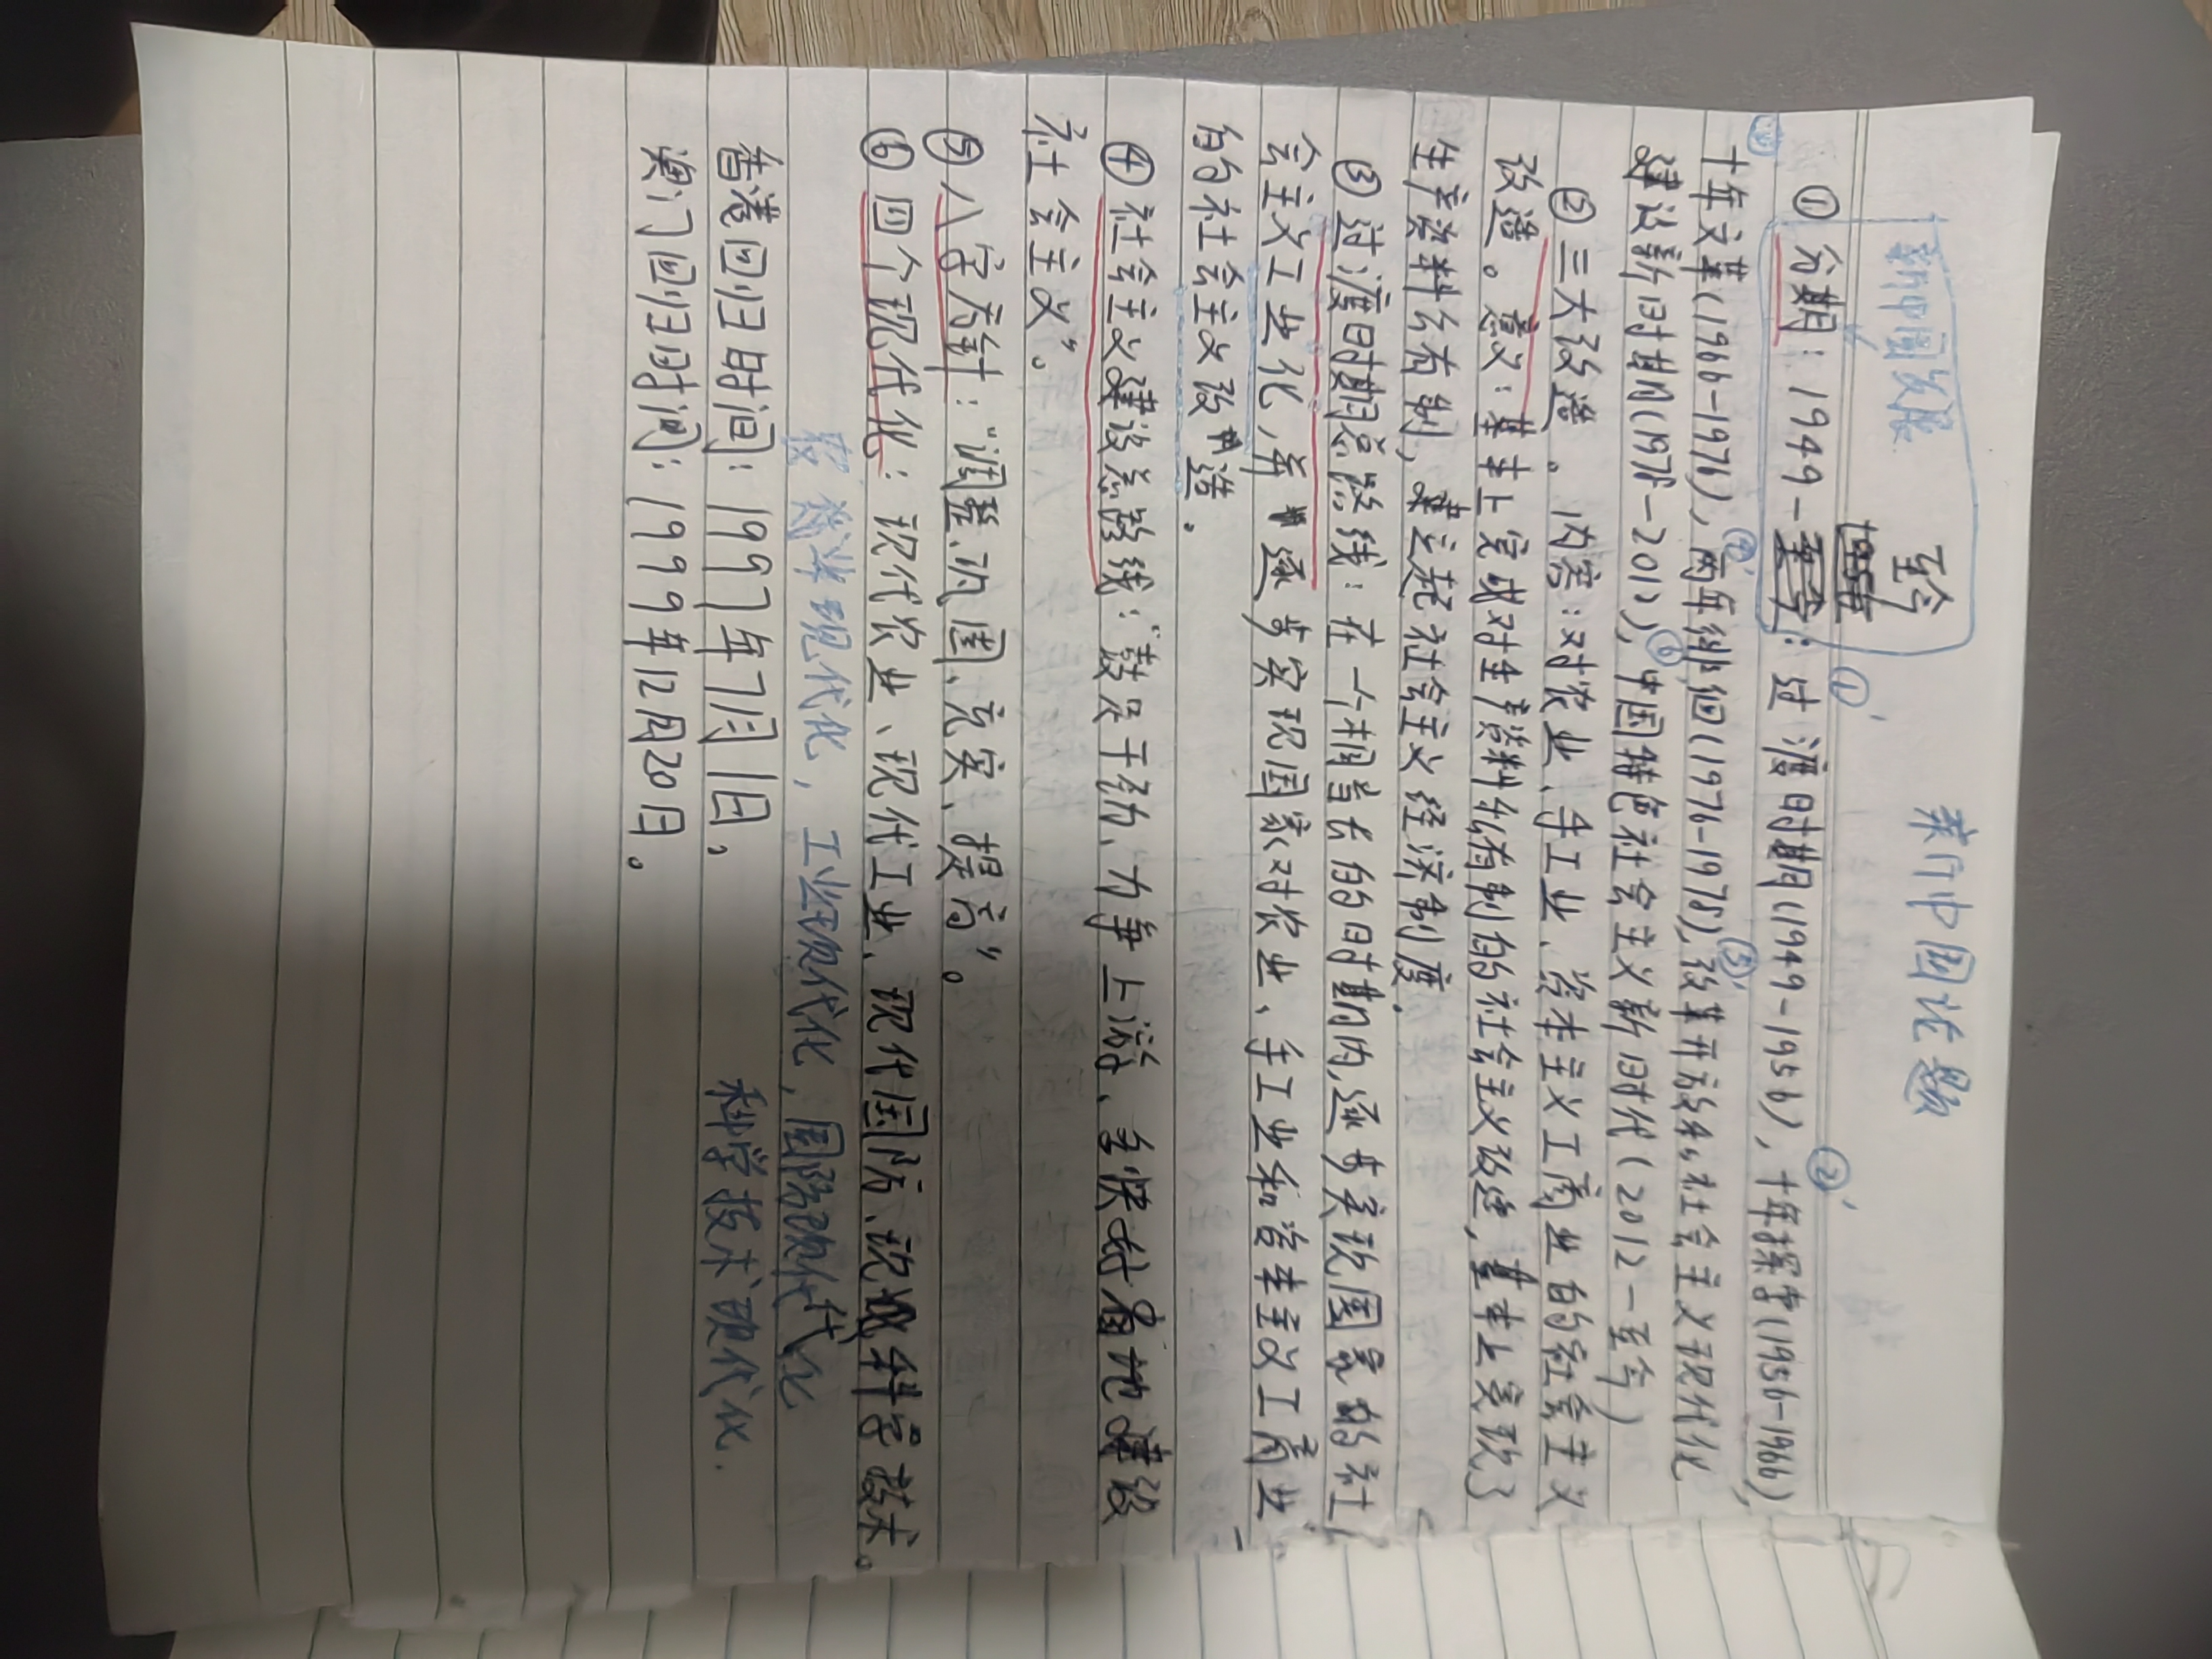 新中国发展 新中国试题
至今
① 分期：1949-：过渡时期(1949-1956)，十年探索(1956-1966)，
十年文革(1966-1976)，两年徘徊(1976-1978)，改革开放和社会主义现代化
建设新时期(1978-2012)，中国特色社会主义新时代(2012-至今)
② 三大改造。内容：对农业、手工业、资本主义工商业的社会主义
改造。意义：基本上完成对生产资料私有制的社会主义改造，基本上实现了
生产资料公有制，建立起社会主义经济制度．
③ 过渡时期总路线：在一个相当长的时期内，逐步实现国家的社
会主义工业化，并逐步实现国家对农业、手工业和资本主义工商业
的社会主义改造．
④ 社会主义建设总路线：“鼓足干劲、力争上游、多快好省地建设
社会主义”。
⑤ 八字方针：“调整、巩固、充实、提高”。
⑥ 四个现代化：现代农业、现代工业、现代国防、现代科学技术。
农业现代化，工业现代化，国防现代化
科学技术现代化．
香港回归时间：1997年7月1日，
澳门回归时间：1999年12月20日。